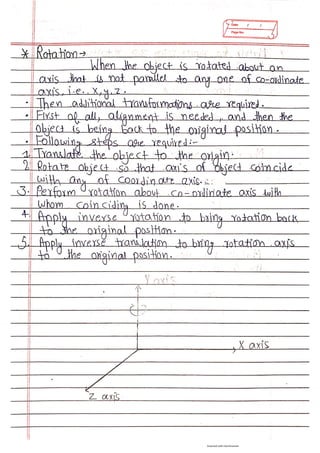 Date / /
Page No.
* Rotation →
When the object is rotated about an
axis that is not parallel to any one of co-ordinate
axis, i.e. x,y,z.
• Then additional transformations are required.
• First of all, alignment is needed, and then the
Object is being back to the original position.
• Following steps are required:-
1. Translate the object to the origin.
2. Rotate object so that axis of object coincide
with any of coordinate axis.
3. Perform rotation about co-ordinate axis with
whom coinciding is done.
4. Apply inverse rotation to bring rotation back
to the original position.
5. Apply inverse translation to bring rotation axis
to the original position.
Y axis
X axis
Z axis